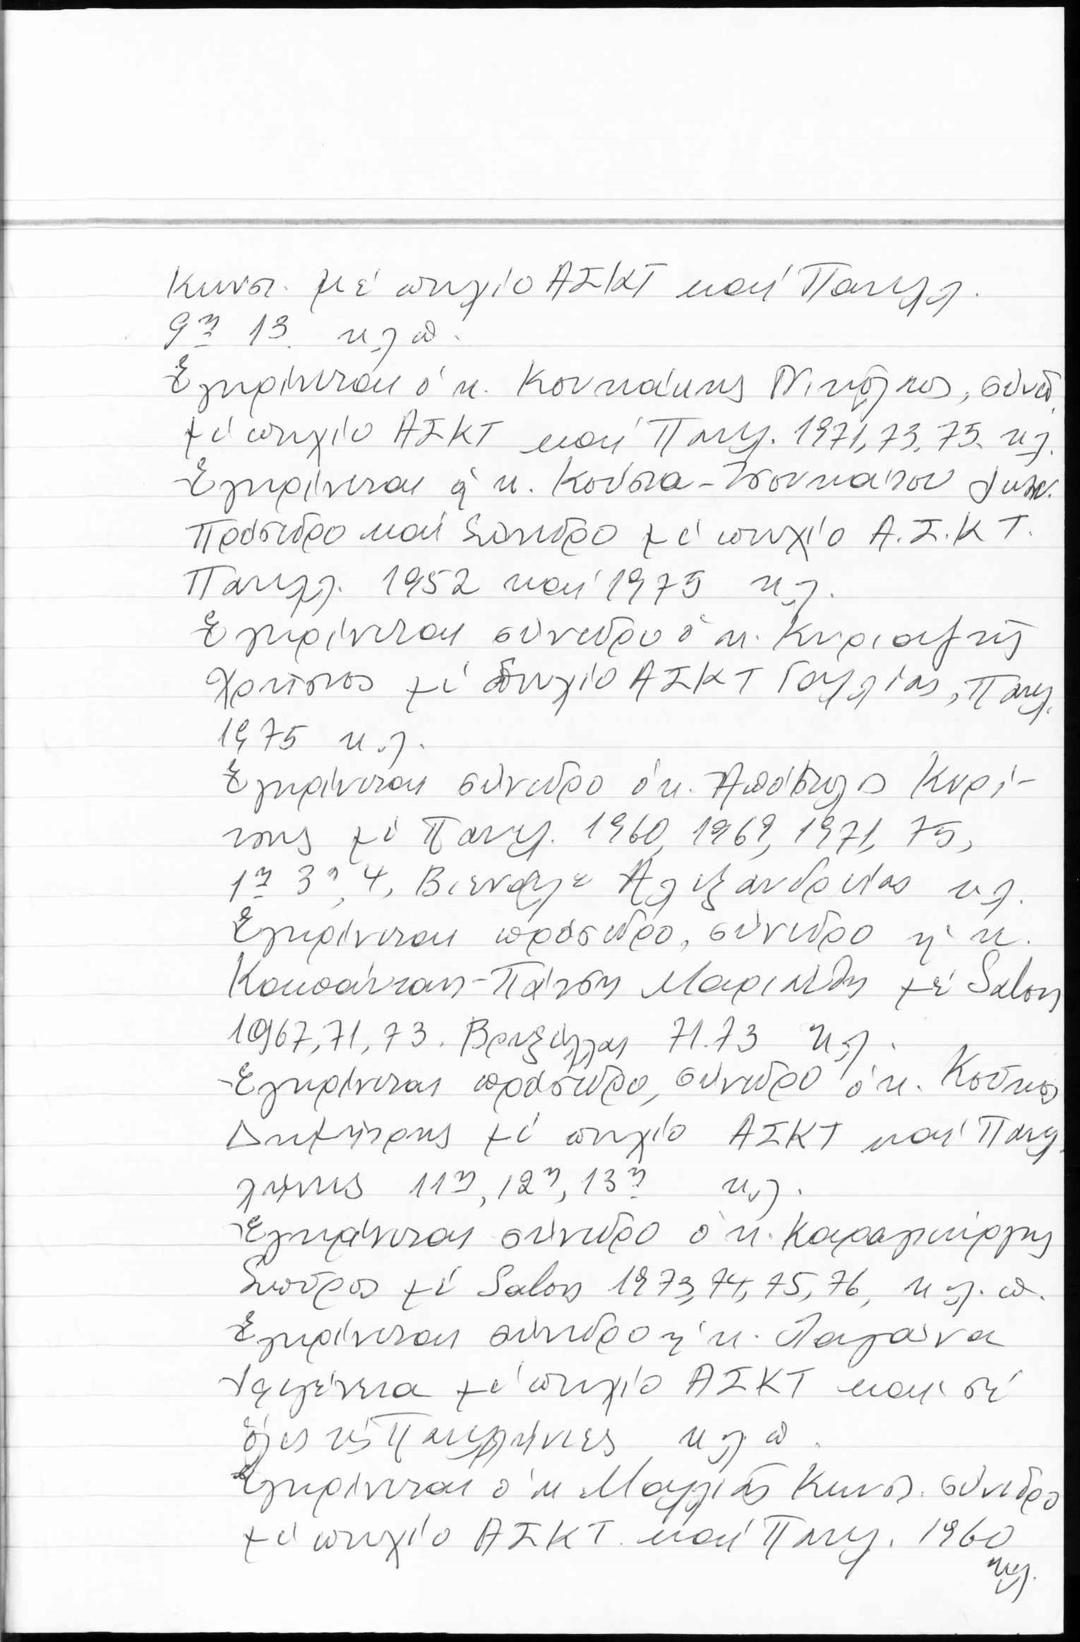 Κωνστ. μέ πτυχίο ΑΣΚΤ καί Πανελλ.
9η 13. κ.λ.π.
Ἐγκρίνεται ὁ κ. Κουκάκης Νικόλαος, σύνεδ
μέ πτυχίο ΑΣΚΤ καί Πανελ. 1971, 73, 75 κ.λ.
Ἐγκρίνεται ἡ κ. Κούστα-Τσουκάτου
πρόσεδρο καί Σύνεδρο μέ πτυχίο Α.Σ.Κ.Τ.
Πανελλ. 1952 καί 1975 κ.λ.
Ἐγκρίνεται σύνεδρο ὁ κ. Κυριαζής
Χρῆστος μέ πτυχίο ΑΣΚΤ Γαλλίας, Πανελ.
1975 κ.λ.
Ἐγκρίνεται σύνεδρο ὁ κ. Ἀπόστολος Κυρί-
τσης μέ Πανελ. 1960, 1969, 1971, 75,
1η 3η, 4, Βιενάλε Ἀλεξανδρείας κ.λ.
Ἐγκρίνεται πρόσεδρο, σύνεδρο ἡ κ.
μέ Salon
1967, 71, 73. Βρυξέλλαι 71. 73 κ.λ.
Ἐγκρίνεται πρόσεδρο, σύνεδρο ὁ κ. Κούκος
Δημήτρης μέ πτυχίο ΑΣΚΤ καί Πανελ
λήνιες 11η, 12η, 13η κ.λ.
Ἐγκρίνεται σύνεδρο ὁ κ. Καραγεώργης
Σπῦρος μέ Salon 1973, 74, 75, 76, κ.λ.π.
Ἐγκρίνεται σύνεδρο ἡ κ. Λαγάνα
Ἰφιγένεια μέ πτυχίο ΑΣΚΤ καί σέ
ὅλες τίς Πανελλήνιες κ.λ.π.
Ἐγκρίνεται ὁ κ. Μαλλιάς Κωνστ. σύνεδρο
μέ πτυχίο ΑΣΚΤ. καί Πανελ. 1960
κ.λ.